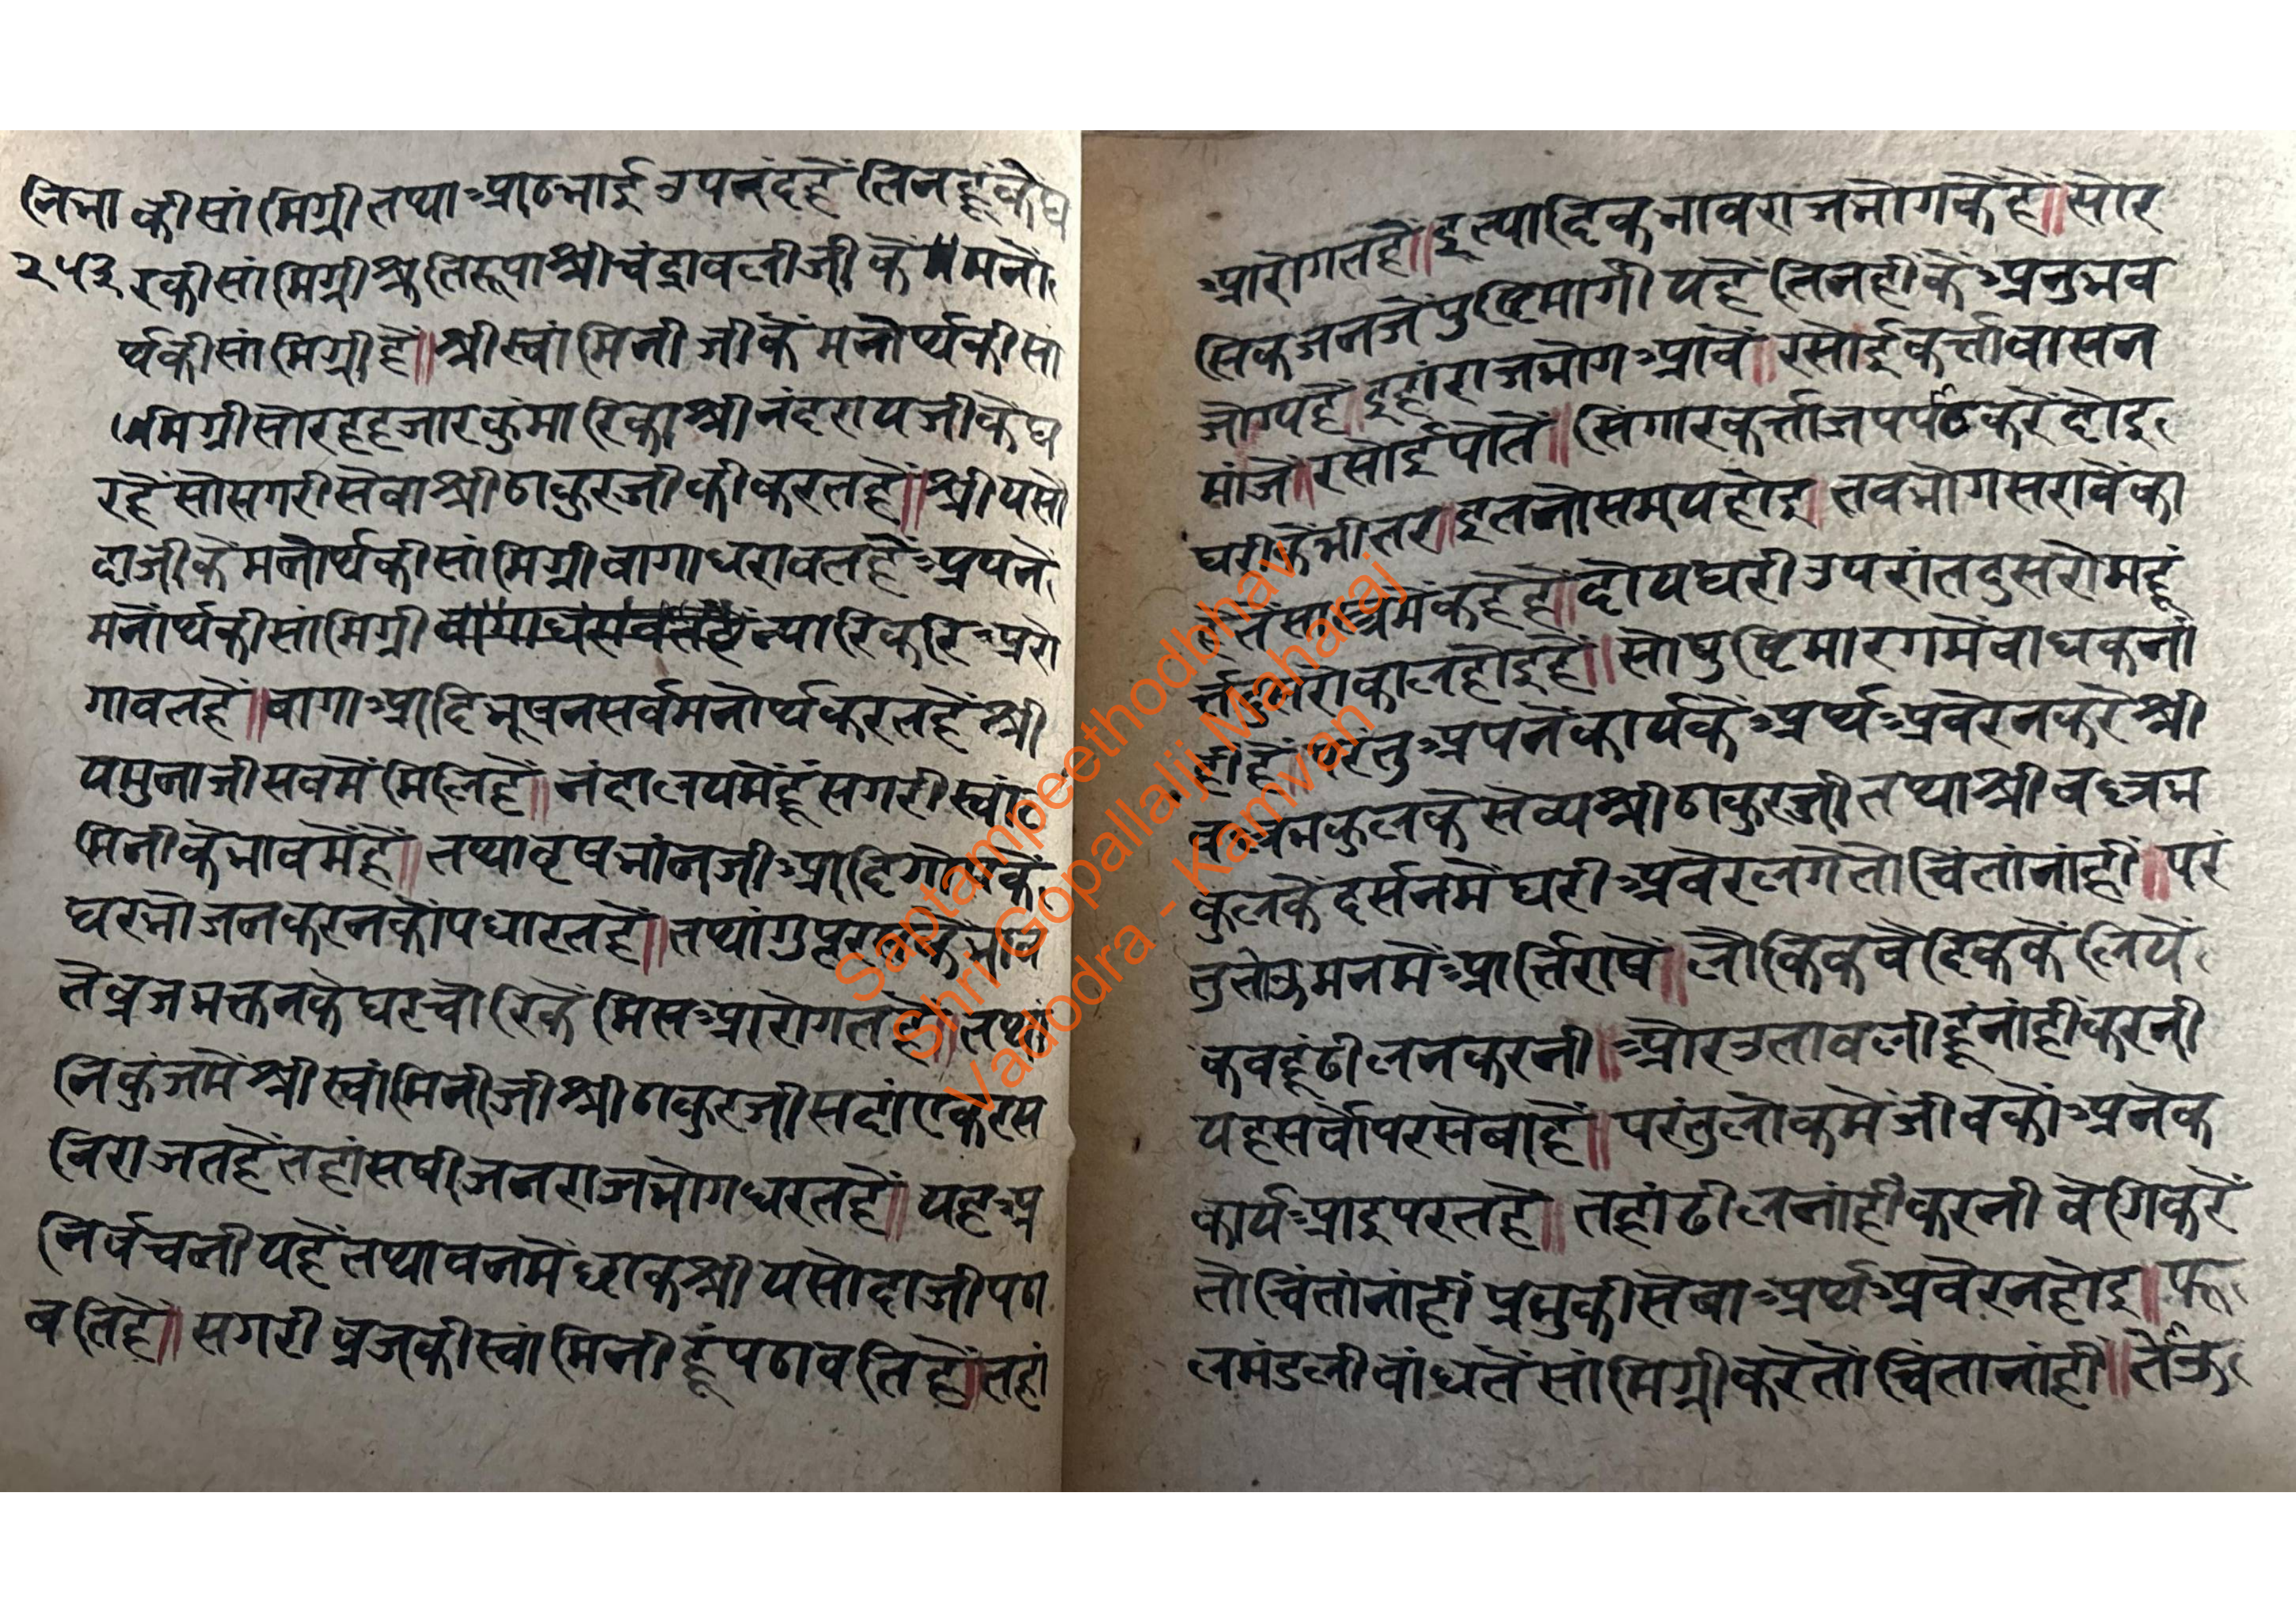 निभा की सांमिग्री तथा आठभाई उपनंद हैं तिनहूं के घ
२५३ र की सांमिग्री श्रुतिरूपा श्रीचंद्रावलीजी के मनो
र्थ की सांमिग्री हैं॥ श्रीस्वांमिनीजी के मनोर्थ की सां
मिग्री सोरह हजार कुंमारिका श्रीनंदरायजी के घ
र हैं सो सगरी सेवा श्रीठाकुरजी की करत हैं॥ श्रीयसो
दाजी के मनोर्थ की सांमिग्री वागा धरावत हैं अपने
मनोर्थ की सांमिग्री न्यारि करि अरो
गावत हैं॥ वागा आदि भूषन सर्व मनोर्थ करत हैं श्री
यमुनाजी सब में मिलि हैं॥ नंदालय में हूं सगरी स्वां
मिनी के भाव में हैं॥ तथा वृषभांनजी आदि गोप के
घर भोजन करन कों पधारत हैं॥ तथा गुप्त
ते व्रजभक्तन के घर चोरि के मिस आरोगत हैं॥ तथा
निकुंज में श्रीस्वांमिनीजी श्रीठाकुरजी सदां एक रस
विराजत हैं तहां सषीजन राजभोग धरत हैं॥ यह अ
निर्वचनीय हैं तथा वन में छाक श्रीयसोदाजी पठा
वति हैं॥ सगरी व्रज की स्वांमिनी हूं पठावति हैं॥ तहां
आरोगत हैं॥ इत्यादिक भाव राजभोग के हैं॥ सो र
सिकजन जे पुष्टिमार्गीय हैं तिनही के अनुभव
जोग्य हैं॥ इहां राजभोग आवें॥ रसोई कर्त्ता वासन
मांजे॥ रसोई पोतें॥ सिंगार कर्त्ता जप पाठ करें दोइ
घरी के भीतर॥ इतनो समय होइ॥ तब भोग सरावें का
हे तें सास्त्र में कहे हैं॥ दोय घरी उपरांत दुसरो महूं
र्त्त दुसरो काल होइ हैं॥ सो पुष्टिमारग में बाधक नां
ही हैं॥ परंतु अपने कार्य के अर्थ अवेर न करे श्री
वल्लभकुल के सेव्य श्रीठाकुरजी तथा श्रीवल्लभ
कुल के दर्सन में घरी अवेर लगे तो चिंता नांहीं॥ परं
तु तोऊ मन में आर्त्ति राषे॥ लौकिक वैदिक के लियें
कबहूं ढील न करनी॥ और उतावली हूं नांहीं करनी
यह सर्वोपर सेवा हैं॥ परंतु लोक में जीव कों अनेक
कार्य आइ परत हैं॥ तहां ढील नांहीं करनी वेगि करें
तो चिंता नांहीं प्रभु की सेवा अर्थ अवेर न होइ॥ फू
लमंडली बांधतें सांमिग्री करे तो चिंता नांहीं॥ तोऊ